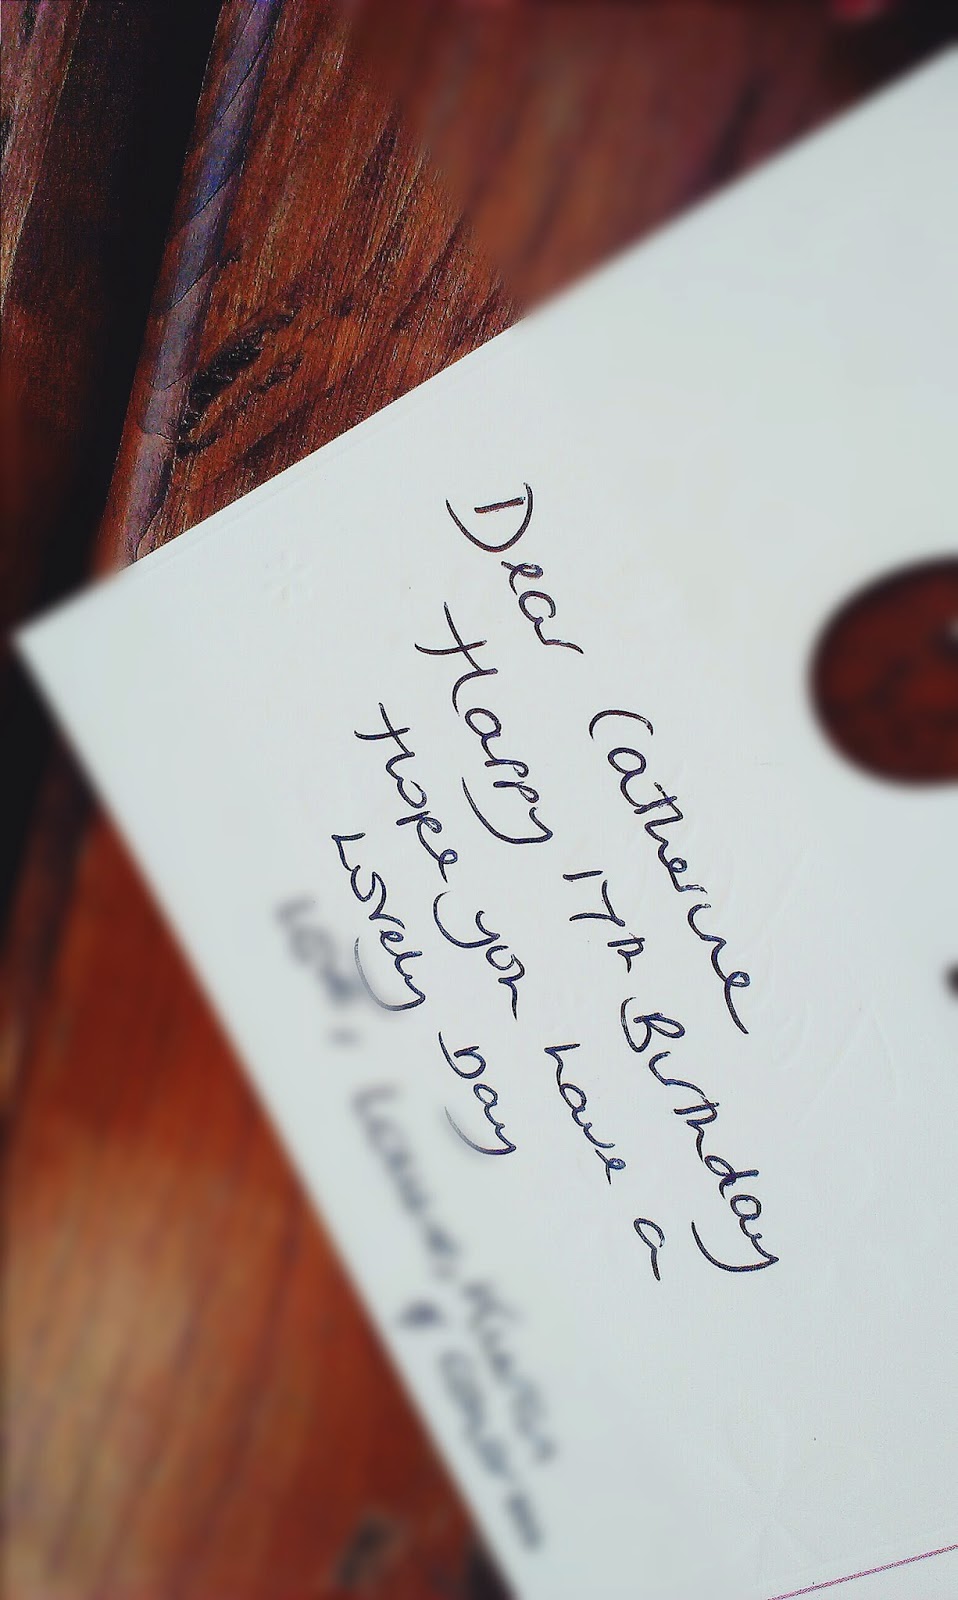 Dear Catherine
Happy 17th Birthday
Hope you have a
Lovely Day